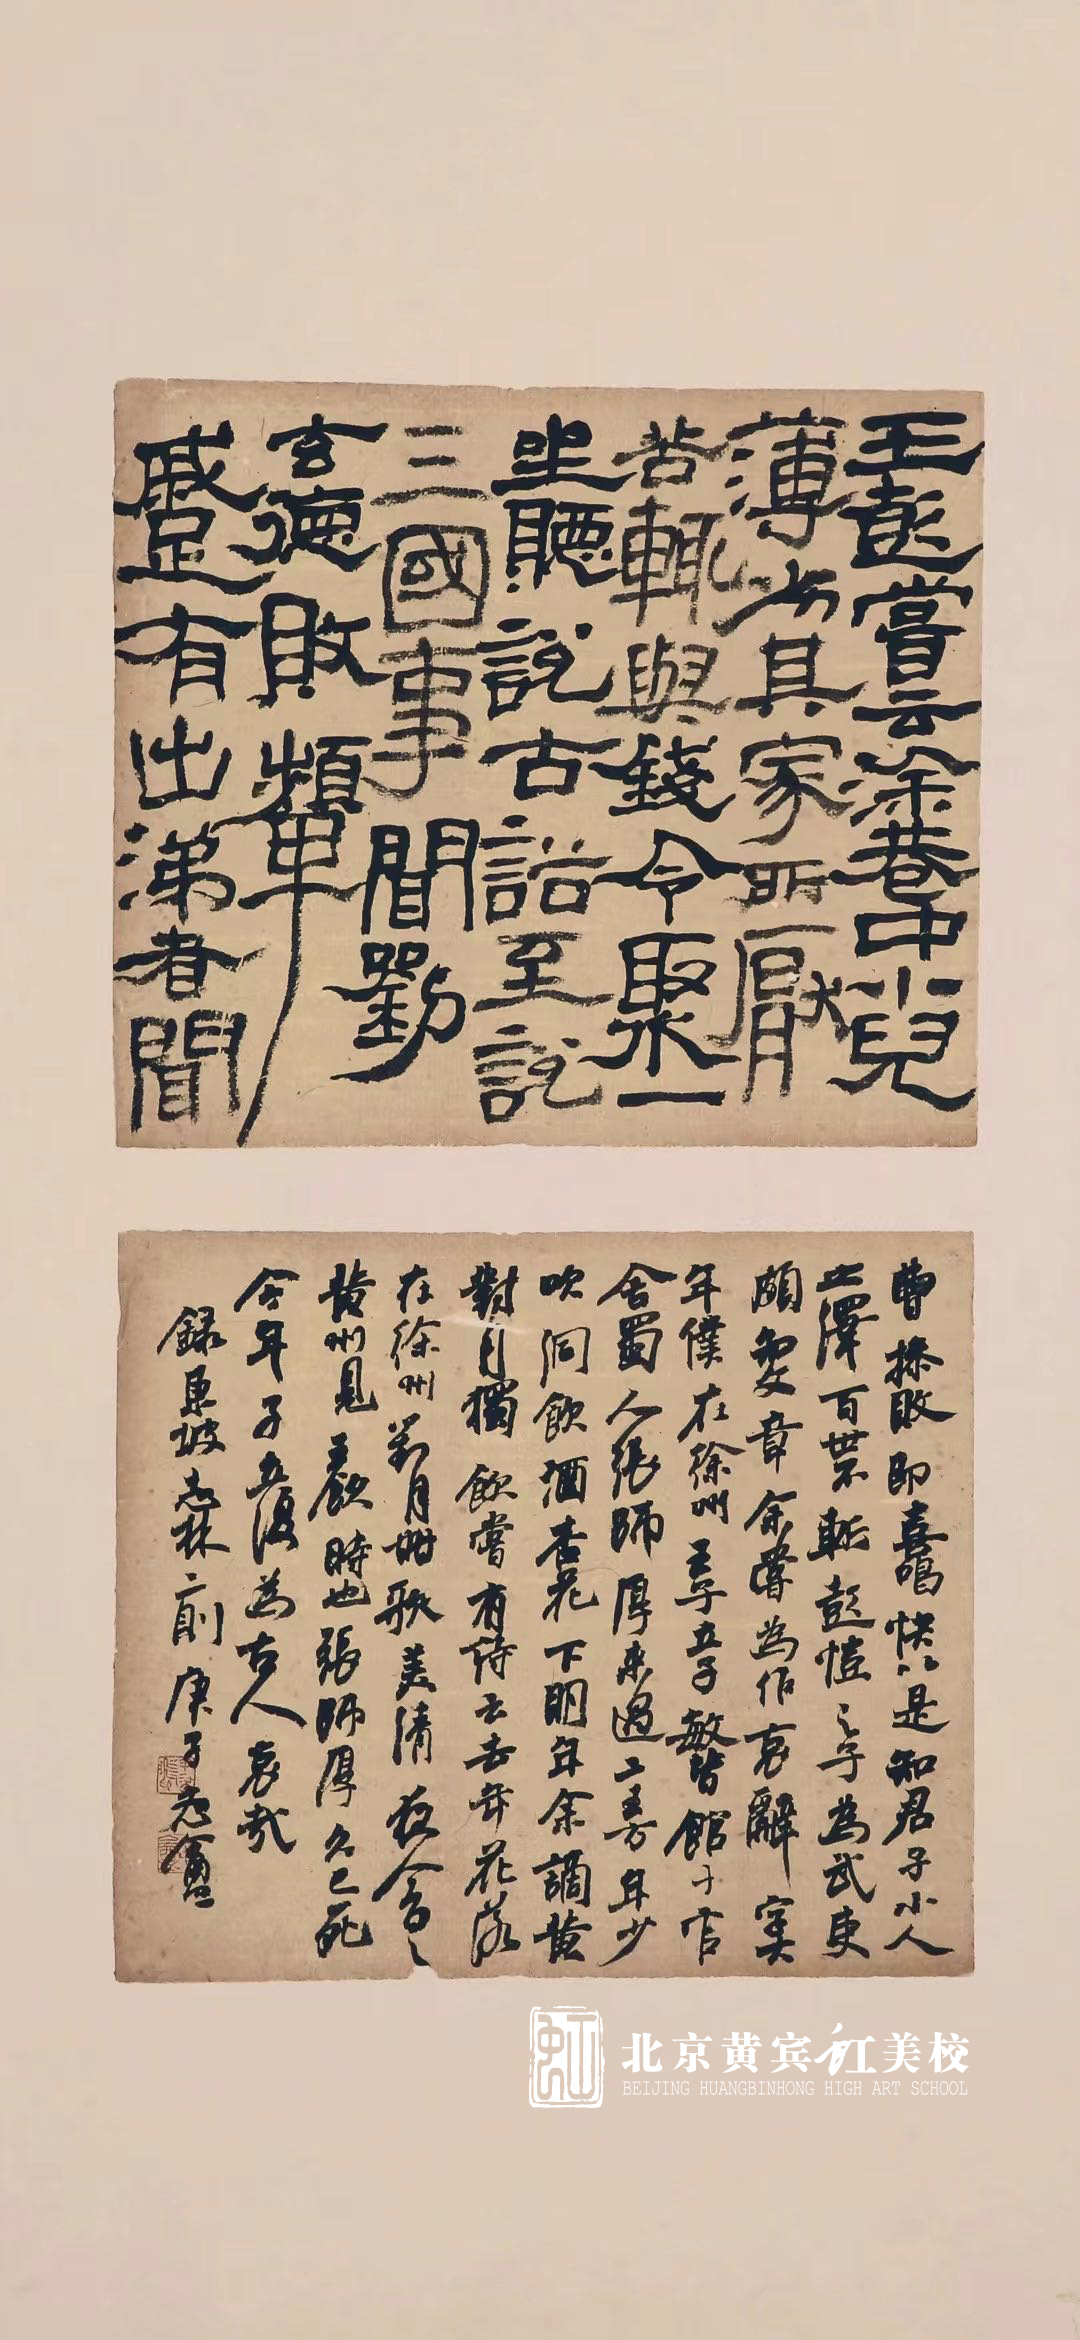 王彭嘗云涂巷中小兒
薄劣其家所厭
苦輒與錢令聚
坐聽說古話至說
三國事聞劉
玄德敗顰
蹙有出涕者聞
曹操敗即喜唱快以是知君子小人
之澤百世不斬彭愷之子為武吏
頗知文章余嘗為作哀辭字大
年僕在徐州王子立子敏皆館于官
舍蜀人張師厚來過二王方年少
吹洞飲酒杏花下明年余謫黃
對月獨飲嘗有詩云去年花落
在徐州對月酣歌美清夜今日
黃州見王飲時也張師厚久已死
今年子立復為古人哀哉
録東坡志林二則庚子
虹
北京黄宾虹美校
BEIJING HUANGBINHONG HIGH ART SCHOOL